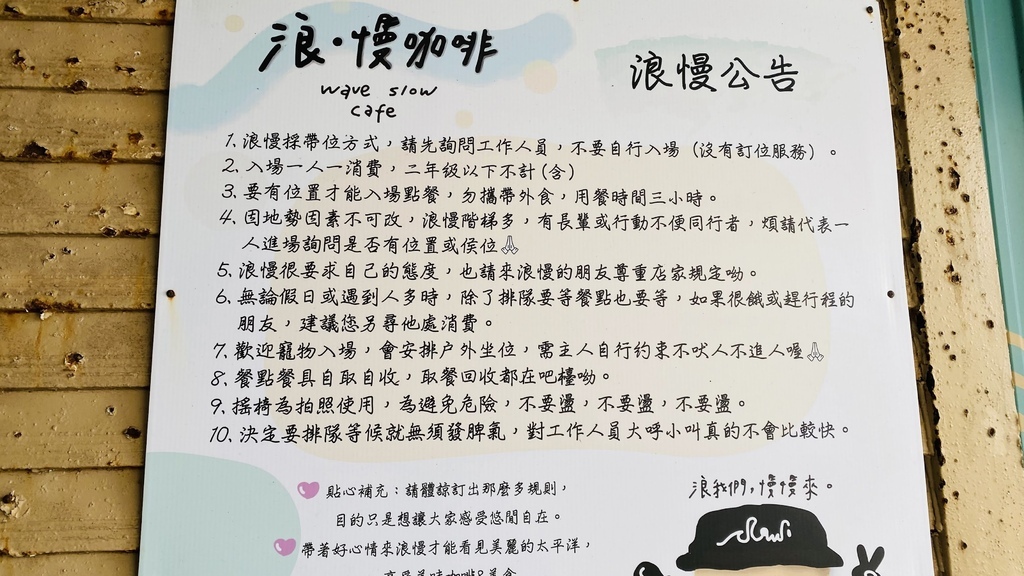 浪·慢咖啡
wave slow
cafe
浪慢公告
1. 浪慢採帶位方式，請先詢問工作人員，不要自行入場（沒有訂位服務）。
2. 入場一人一消費，二年級以下不計(含)
3. 要有位置才能入場點餐，勿攜帶外食，用餐時間三小時。
4. 因地勢因素不可改，浪慢階梯多，有長輩或行動不便同行者，煩請代表一
人進場詢問是否有位置或侯位🙏
5. 浪慢很要求自己的態度，也請來浪慢的朋友尊重店家規定呦。
6. 無論假日或遇到人多時，除了排隊要等餐點也要等，如果很餓或趕行程的
朋友，建議您另尋他處消費。
7. 歡迎寵物入場，會安排戶外坐位，需主人自行約束不吠人不進人喔🙏
8. 餐點餐具自取自收，取餐回收都在吧檯呦。
9. 搖椅為拍照使用，為避免危險，不要盪，不要盪，不要盪。
10. 決定要排隊等候就無須發脾氣，對工作人員大呼小叫真的不會比較快。
貼心補充：請體諒訂出那麼多規則，
目的只是想讓大家感受悠閒自在。
帶著好心情來浪慢才能看見美麗的太平洋，
浪我們，慢慢來。